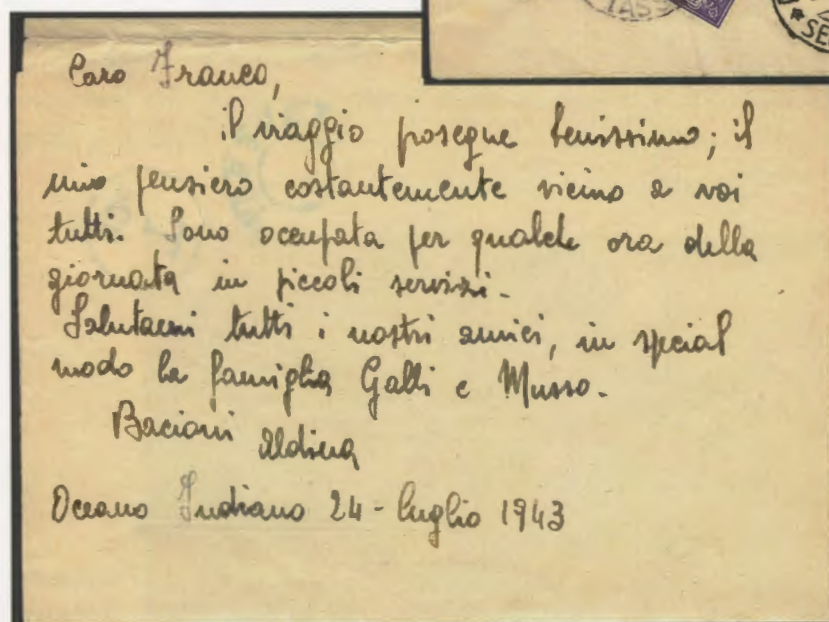 TASS
SE
Caro Franco,
il viaggio prosegue benissimo; il
mio pensiero costantemente vicino a voi
tutti. Sono occupata per qualche ora della
giornata in piccoli servizi.
Salutami tutti i nostri amici, in special
modo la famiglia Galli e Musso.
Bacioni Aldina
Oceano Indiano 24 - luglio 1943